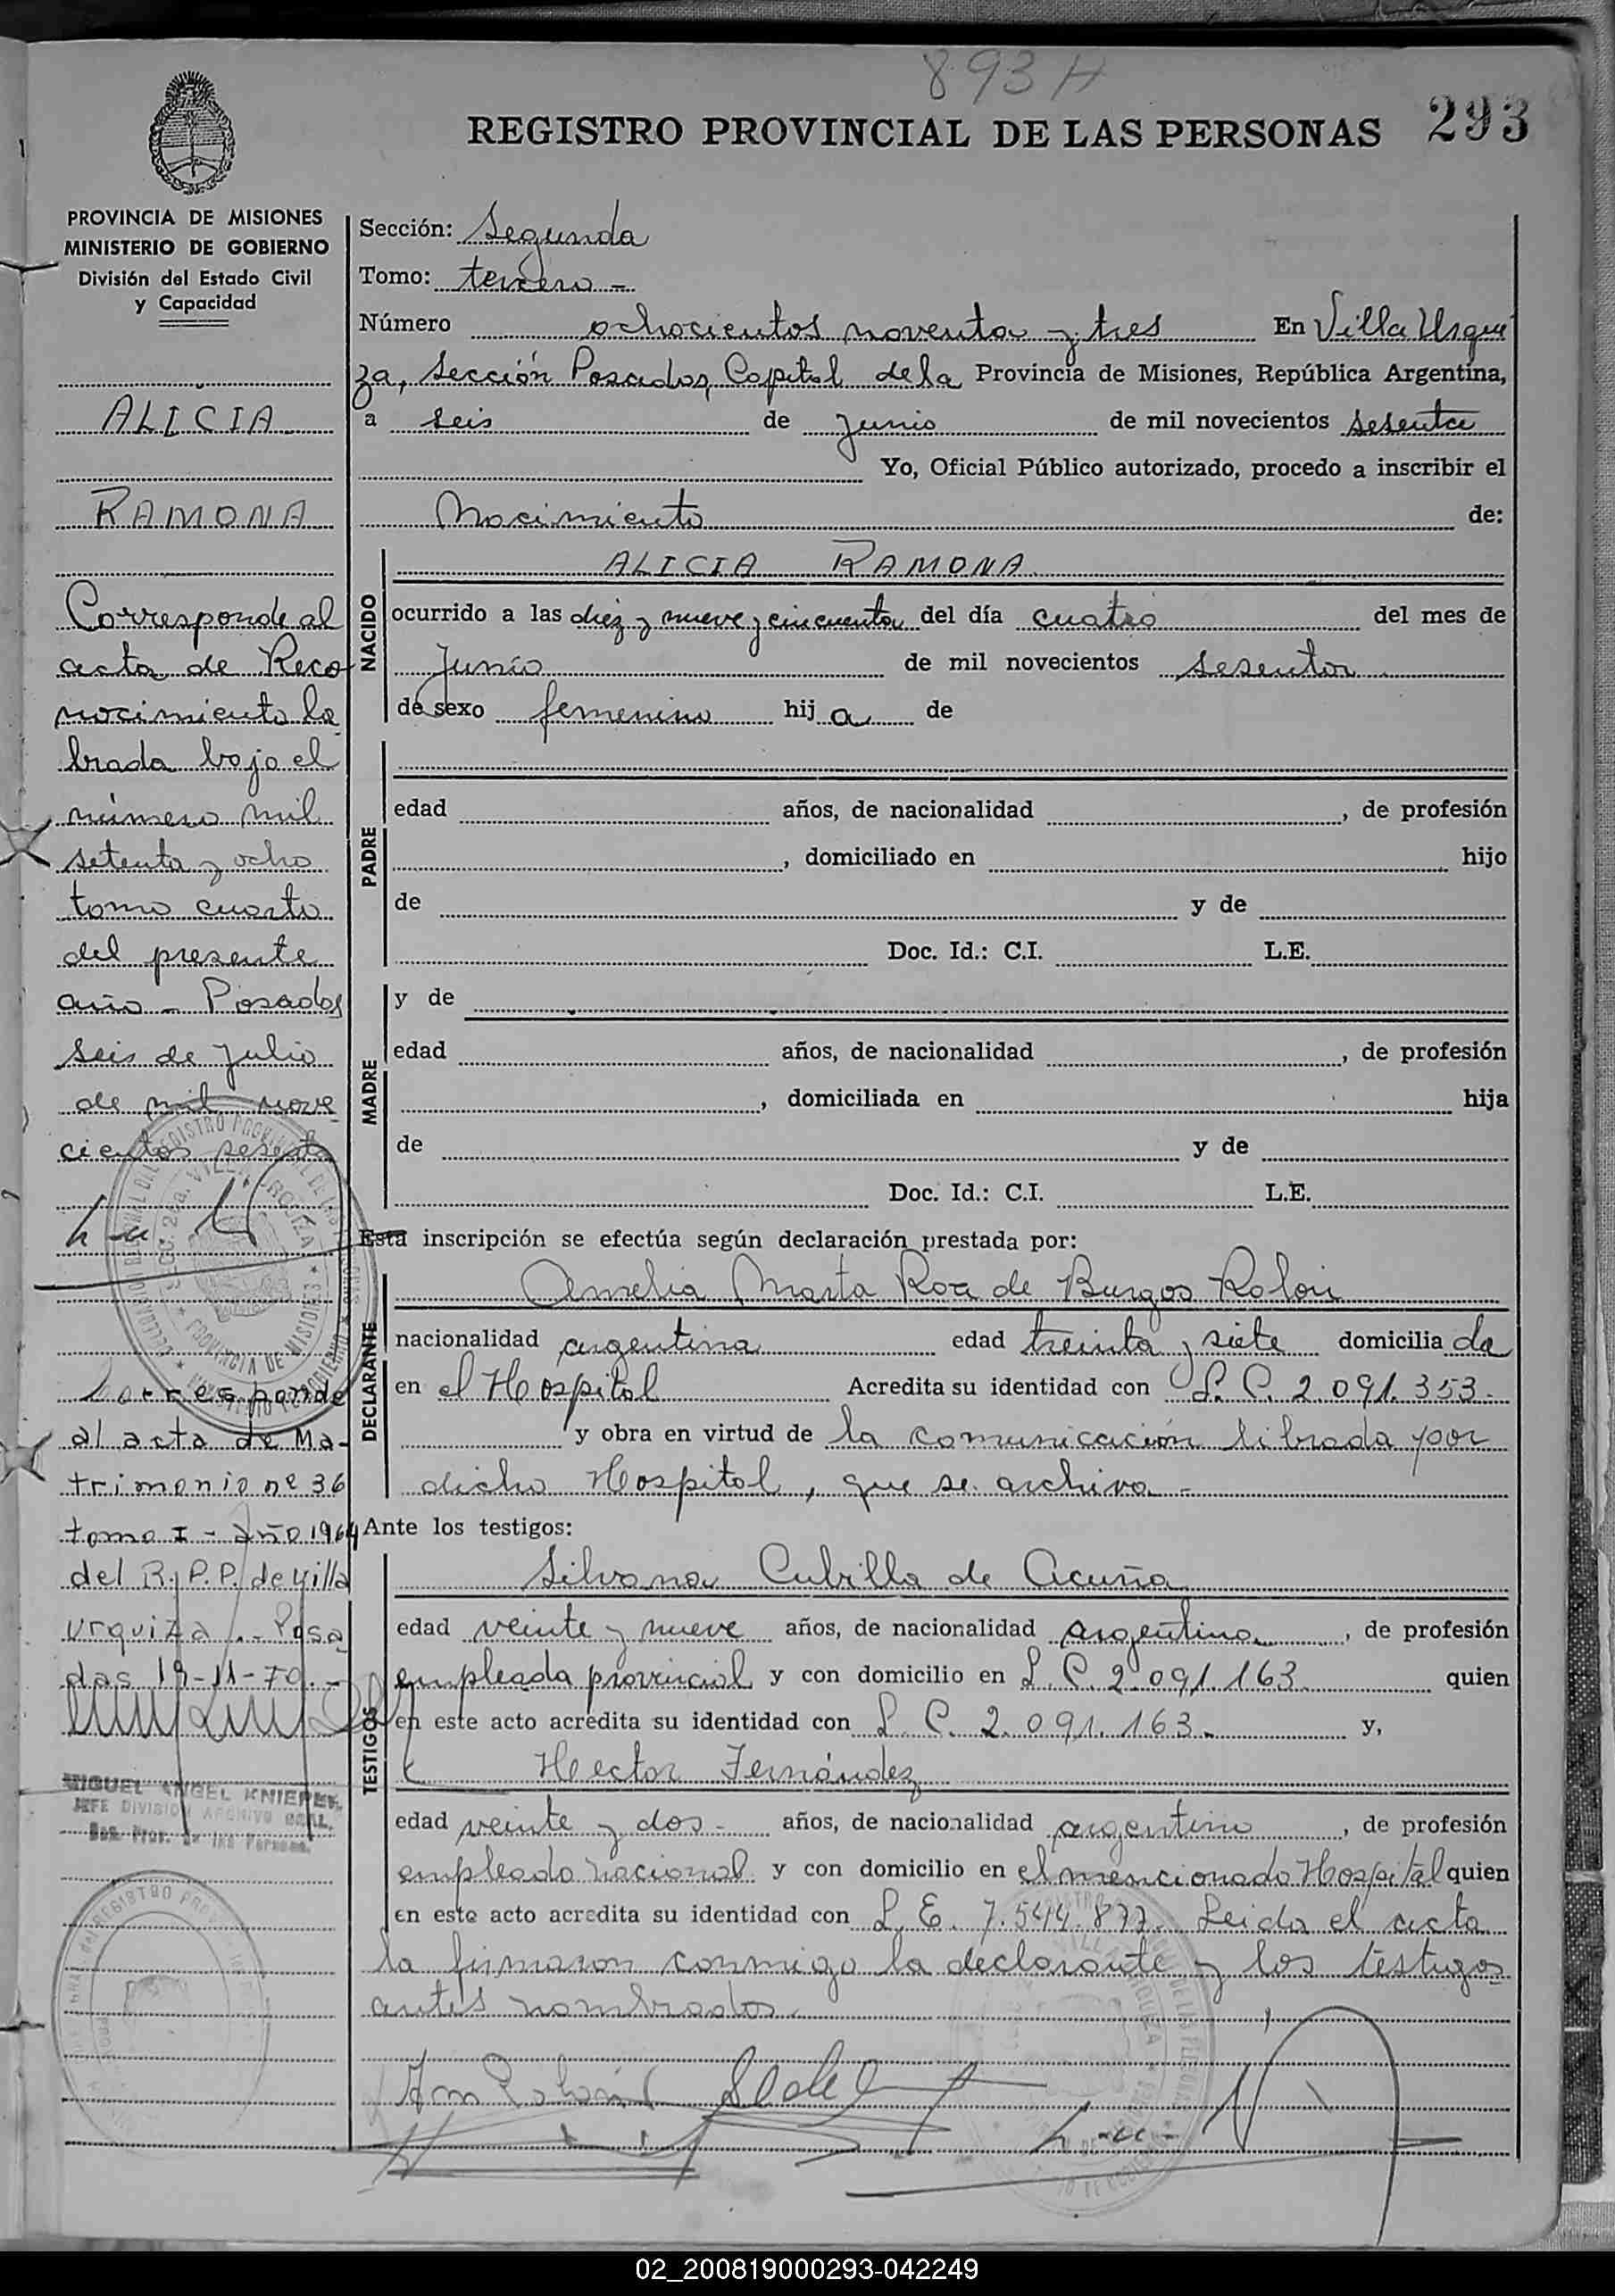 893 H
REGISTRO PROVINCIAL DE LAS PERSONAS 293
PROVINCIA DE MISIONES
MINISTERIO DE GOBIERNO
División del Estado Civil
y Capacidad
ALICIA
RAMONA
Corresponde al
acta de Reco
nocimiento la
brada bajo el
número mil
setenta y ocho
tomo cuarto
del presente
año - Posadas
seis de Julio
de mil nove
cientos sesenta
Corresponde
al acta de Ma-
trimonio nº 36
tomo I - Año 1964
del R.P.P. de Villa
Urquiza .- Posa
das 19-11-70.-
MIGUEL ANGEL KNIEPER
JEFE DIVISION ARCHIVO GRAL.
Sección: Segunda
Tomo: tercero -
Número ochocientos noventa y tres En Villa Urqui
za, Sección Posadas, Capital de la Provincia de Misiones, República Argentina,
a seis de junio de mil novecientos sesenta
Yo, Oficial Público autorizado, procedo a inscribir el
Nacimiento de:
NACIDO
ALICIA RAMONA
ocurrido a las diez y nueve y cincuenta del día cuatro del mes de
Junio de mil novecientos sesenta
de sexo femenino hija de
PADRE
edad años, de nacionalidad , de profesión
, domiciliado en hijo
de y de
Doc. Id.: C.I. L.E.
MADRE
y de
edad años, de nacionalidad , de profesión
, domiciliada en hija
de y de
Doc. Id.: C.I. L.E.
Esta inscripción se efectúa según declaración prestada por:
DECLARANTE
Amelia Marta Roa de Burgos Rolón
nacionalidad argentina edad treinta y siete domiciliada
en el Hospital Acredita su identidad con L.C. 2.091.353.-
y obra en virtud de la comunicación librada por
dicho Hospital, que se archiva -
Ante los testigos:
TESTIGOS
Silvana Cubilla de Acuña
edad veinte y nueve años, de nacionalidad argentina , de profesión
empleada provincial y con domicilio en L.C. 2.091.163. quien
en este acto acredita su identidad con L.C. 2.091.163.- y,
Hector Fernández
edad veinte y dos - años, de nacionalidad argentino , de profesión
empleado nacional y con domicilio en el mencionado Hospital quien
en este acto acredita su identidad con L.E. 7.544.877. Leida el acta
la firmaron conmigo la declarante y los testigos
antes nombrados.
02_200819000293-042249